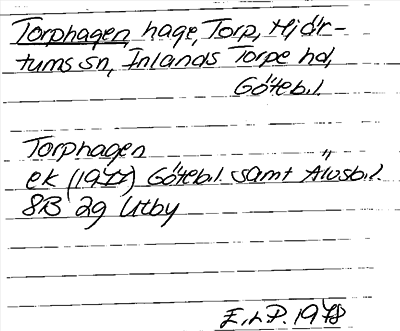 Torphagen, hage, Torp, Hjär-
tums sn, Inlands Torpe hd,
Götebl.
Torphagen
ek (1977) Götebl. samt Älvsbl.
8B 2g Utby
E.L.P. 1978